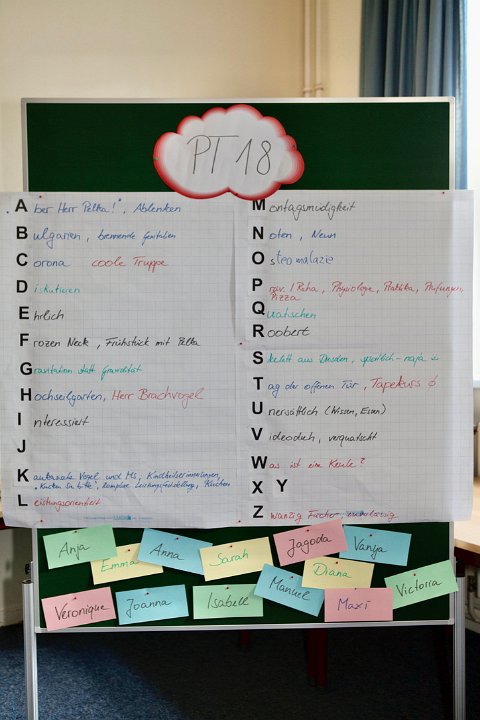 PT 18
Aber Herr Pelka!", Ablenken
Bulgarien, brennende Genitalien
Corona coole Truppe
Diskutieren
Ehrlich
Frozen Neck, Frühstück mit Pelka
Gravitation statt Gravidität
Hochseilgarten, Herr Brachvogel
Interessiert
J
K autonome Vogel und Ms, Kindheitserinnerungen,
Kucken Sie bitte, komplexe Leistungsfeststellung, Kuchen
Leistungsorientiert
Montagsmüdigkeit
Noten, Neun
Osteomalazie
Präv. / Reha, Physiologie, Praktika, Prüfungen,
Pizza
Quatschen
Roobert
Skelett aus Dresden, sportlich - naja
Tag der offenen Tür, Tapekurs
Unersättlich (Wissen, Essen)
Videodich, verquatscht
Was ist eine Keule?
X Y
Zwanzig Fischer, zuverlässig
Anja
Emma
Anna
Sarah
Jagoda
Vanja
Diana
Veronique
Joanna
Isabell
Manuel
Maxi
Victoria